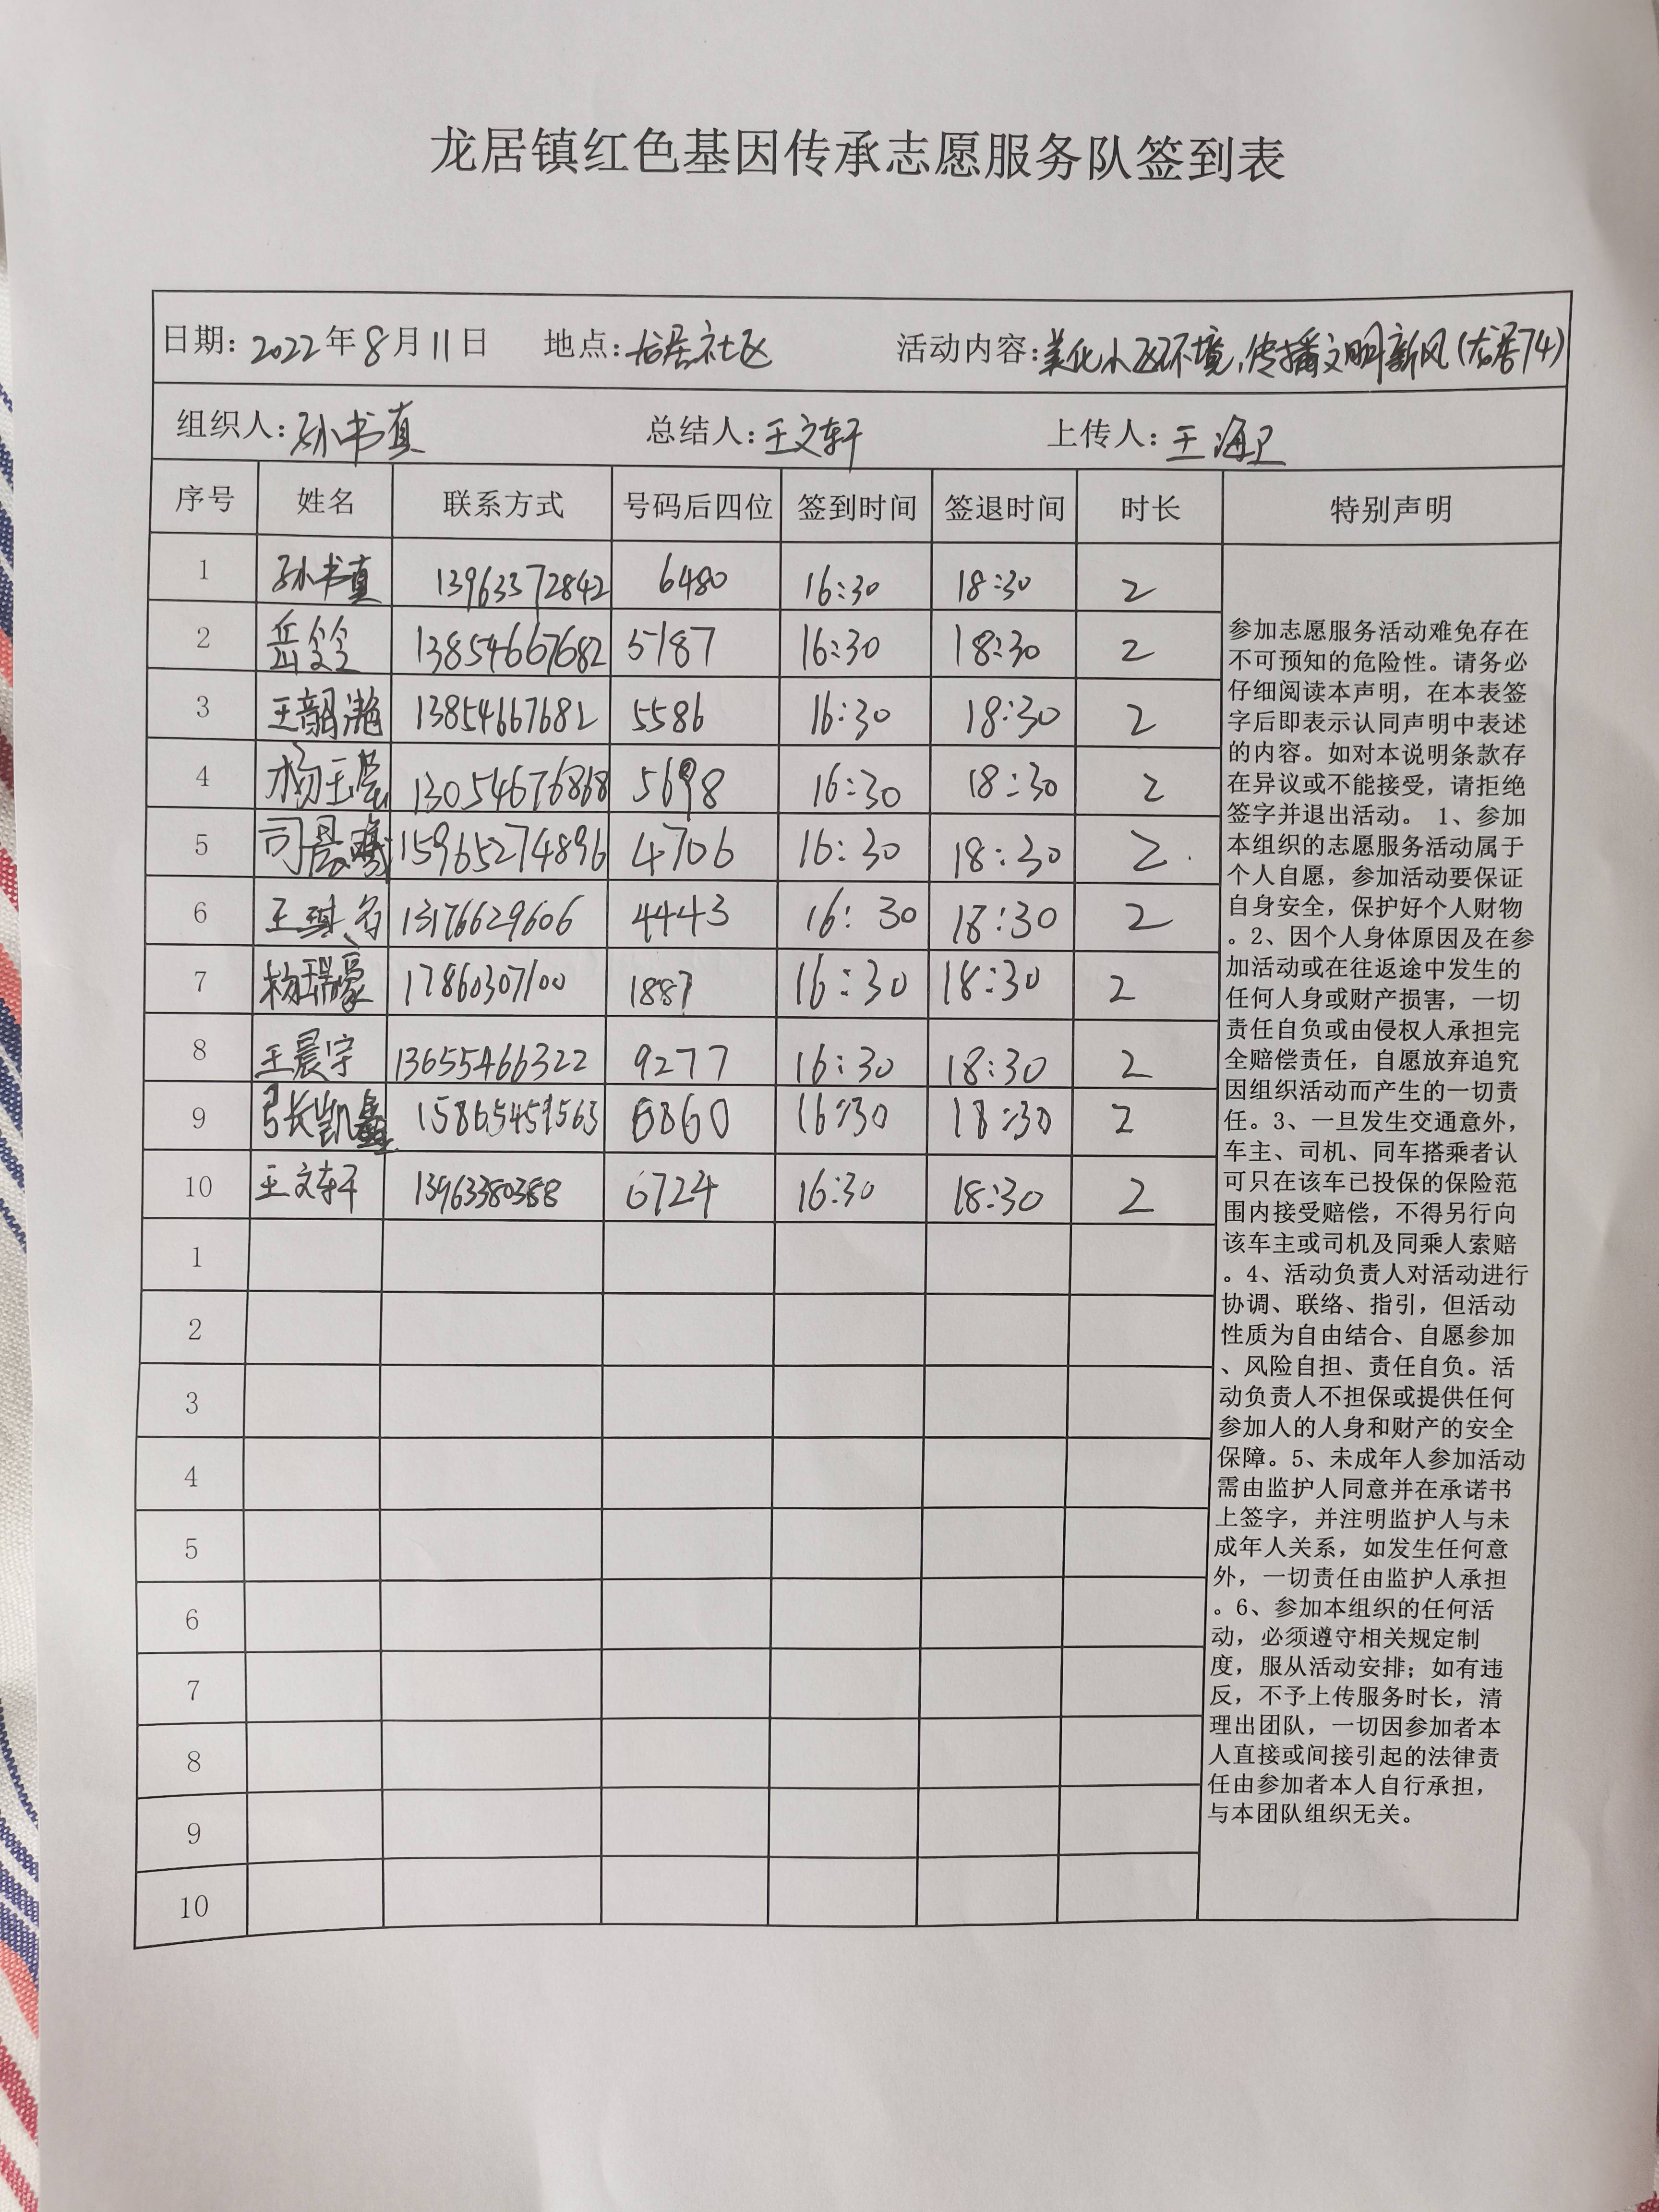 龙居镇红色基因传承志愿服务队签到表
日期: 2022年8月11日 地点: 龙居社区 活动内容: 美化小区环境,传播文明新风(龙居74)
组织人: 孙书真 总结人: 王文轩 上传人: 王海卫
序号 姓名 联系方式 号码后四位 签到时间 签退时间 时长 特别声明
1 孙书真 13963372842 6480 16:30 18:30 2
2 岳 13854667682 5187 16:30 18:30 2
3 王韶瀚 13854667682 5586 16:30 18:30 2
4 杨玉莹 13054676868 5698 16:30 18:30 2
5 司晨曦 15965274896 4706 16:30 18:30 2
6 王琪 13176629606 4443 16:30 18:30 2
7 杨瑞豪 17860307100 1887 16:30 18:30 2
8 王晨宇 13655466322 9277 16:30 18:30 2
9 张凯鑫 15865459563 6860 16:30 18:30 2
10 王文轩 13963380388 6724 16:30 18:30 2
1
2
3
4
5
6
7
8
9
10
参加志愿服务活动难免存在
不可预知的危险性。请务必
仔细阅读本声明,在本表签
字后即表示认同声明中表述
的内容。如对本说明条款存
在异议或不能接受,请拒绝
签字并退出活动。 1、参加
本组织的志愿服务活动属于
个人自愿,参加活动要保证
自身安全,保护好个人财物
。2、因个人身体原因及在参
加活动或在往返途中发生的
任何人身或财产损害,一切
责任自负或由侵权人承担完
全赔偿责任,自愿放弃追究
因组织活动而产生的一切责
任。3、一旦发生交通意外,
车主、司机、同车搭乘者认
可只在该车已投保的保险范
围内接受赔偿,不得另行向
该车主或司机及同乘人索赔
。4、活动负责人对活动进行
协调、联络、指引,但活动
性质为自由结合、自愿参加
、风险自担、责任自负。活
动负责人不担保或提供任何
参加人的人身和财产的安全
保障。5、未成年人参加活动
需由监护人同意并在承诺书
上签字,并注明监护人与未
成年人关系,如发生任何意
外,一切责任由监护人承担
。6、参加本组织的任何活
动,必须遵守相关规定制
度,服从活动安排;如有违
反,不予上传服务时长,清
理出团队,一切因参加者本
人直接或间接引起的法律责
任由参加者本人自行承担,
与本团队组织无关。